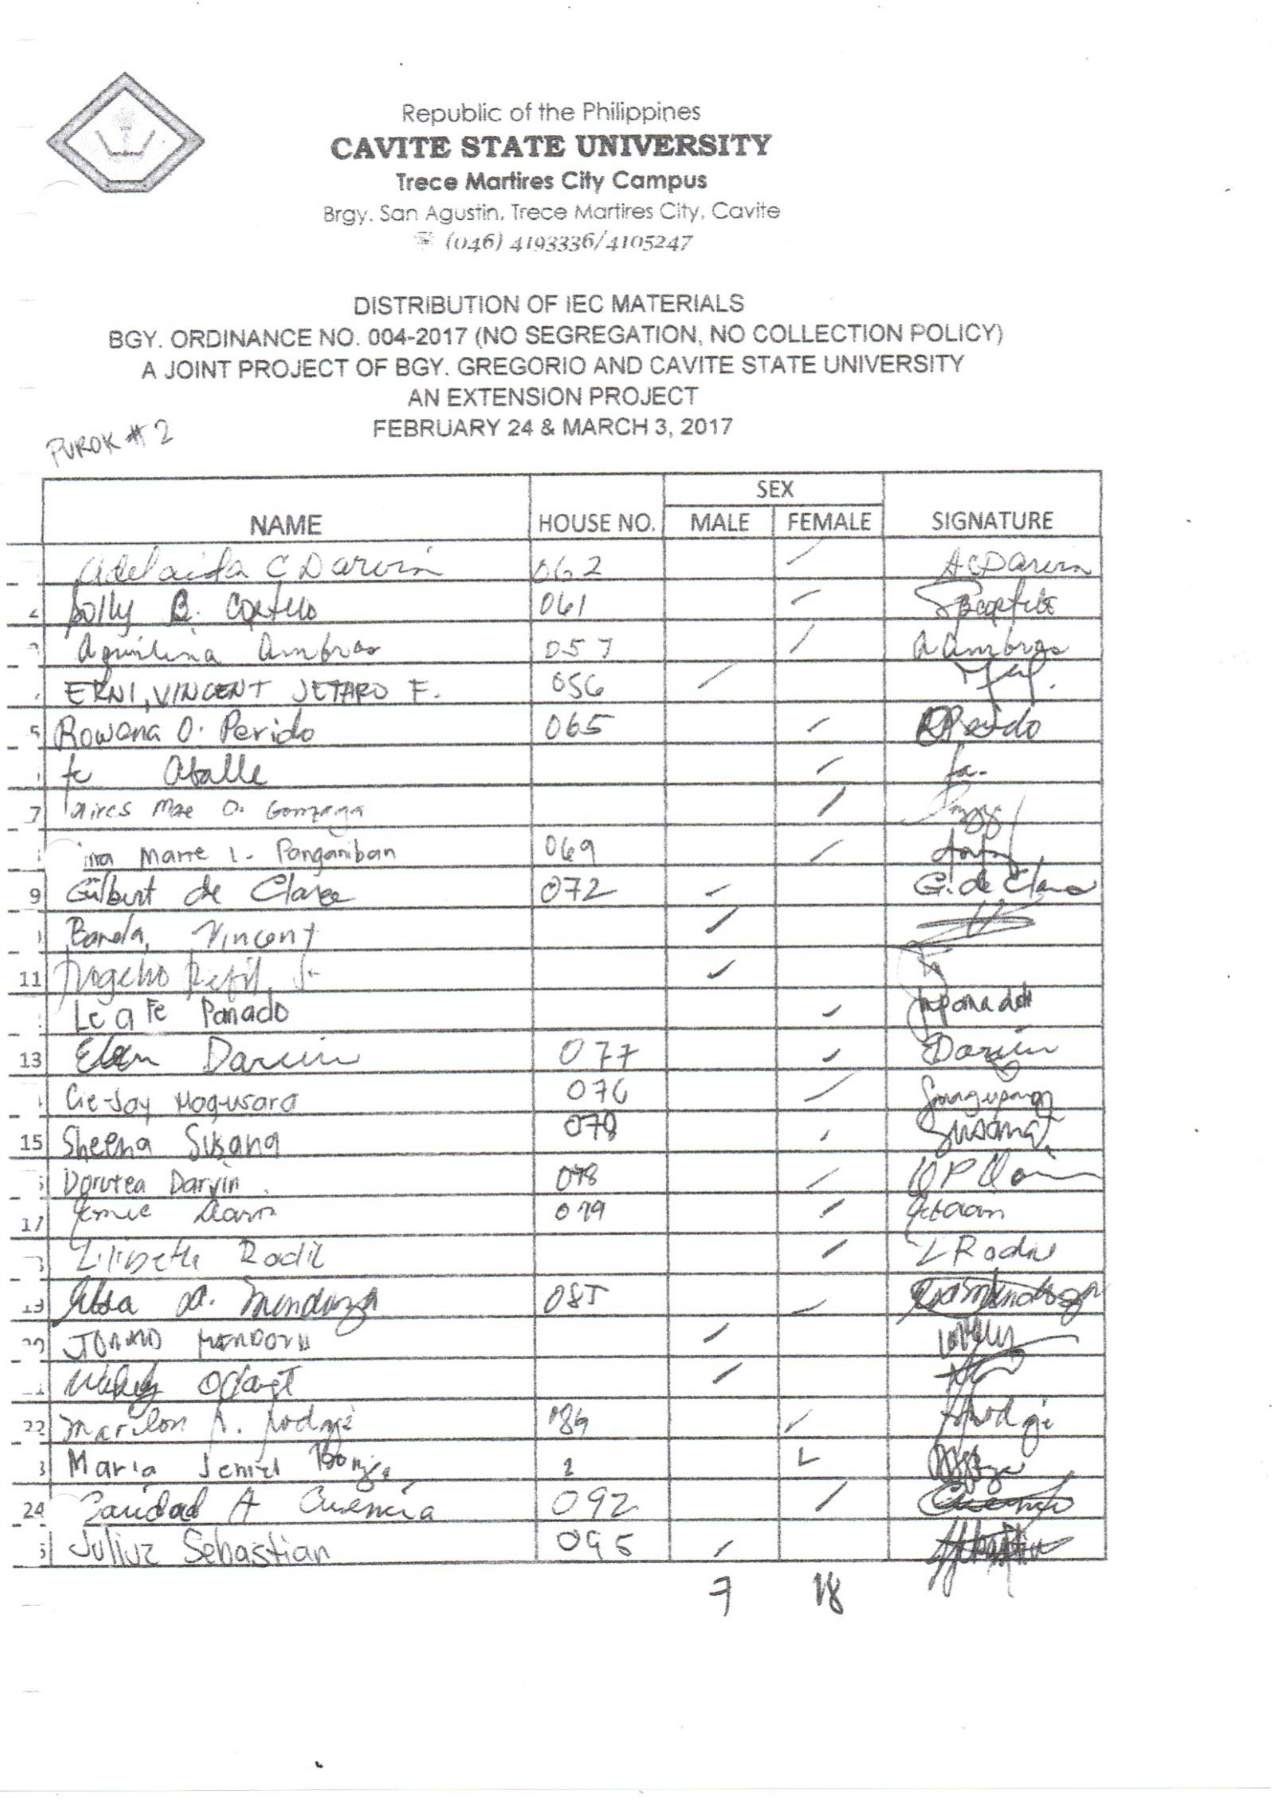 Republic of the Philippines
CAVITE STATE UNIVERSITY
Trece Martires City Campus
Brgy. San Agustin, Trece Martires City, Cavite
☏ (046) 4193336/4105247
DISTRIBUTION OF IEC MATERIALS
BGY. ORDINANCE NO. 004-2017 (NO SEGREGATION, NO COLLECTION POLICY)
A JOINT PROJECT OF BGY. GREGORIO AND CAVITE STATE UNIVERSITY
AN EXTENSION PROJECT
FEBRUARY 24 & MARCH 3, 2017
PUROK # 2
SEX
NAME HOUSE NO. MALE FEMALE SIGNATURE
Adelaida C Darvin 062 ACDarvin
Dolly B. 061
Aguilina Ambras 057 A Ambras
ERNI, VINCENT JETARO F. 056
5 Rowena O. Perido 065 RPerido
Fe Aballe fa.
7 Mae O. Gonzaga
Marie L. Panganiban 069
9 Gilbert de Claree 072 G. de Clara
Banda, Vincent
11
Le a Fe Panado
13 Darwin 077 Darwin
Cie-Jay Magusara 076
15 Sheena Susana 078 Susana
Dorotea Darvin 078
17 079
Lilibeth Rodil L Rodil
19 Elsa A. Mendoza 085
20
22 A. 086
Maria Jeniel 2
24 Caridad A Cuenca 092 Cuenca
Juliuz Sebastian 095
7 18